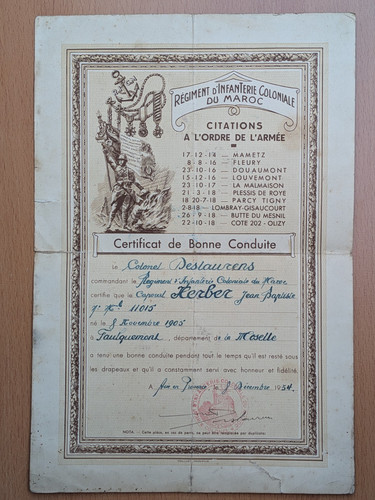 RÉGIMENT D'INFANTERIE COLONIALE
DU MAROC
CITATIONS
A L'ORDRE DE L'ARMÉE
17-12-14 — MAMETZ
8-8-16 — FLEURY
23-10-16 — DOUAUMONT
15-12-16 — LOUVEMONT
23-10-17 — LA MALMAISON
21-3-18 — PLESSIS DE ROYE
18 20-7-18 — PARCY TIGNY
2-8-18 — LOMBRAY-GISAUCOURT
26-9-18 — BUTTE DU MESNIL
22-10-18 — COTE 202-OLIZY
Certificat de Bonne Conduite
Le Colonel Deslaurens
commandant le Régiment d'Infanterie Coloniale du Maroc
certifie que le Caporal Herber Jean Baptiste
11015
né le 8 Novembre 1905
Faulquemont, département de la Moselle
a tenu une bonne conduite pendant tout le temps qu'il est resté sous
les drapeaux et qu'il a constamment servi avec honneur et fidélité.
A Aix en Provence le Décembre 1934.
NOTA. - Cette pièce, en cas de perte, ne peut être remplacée par duplicata.